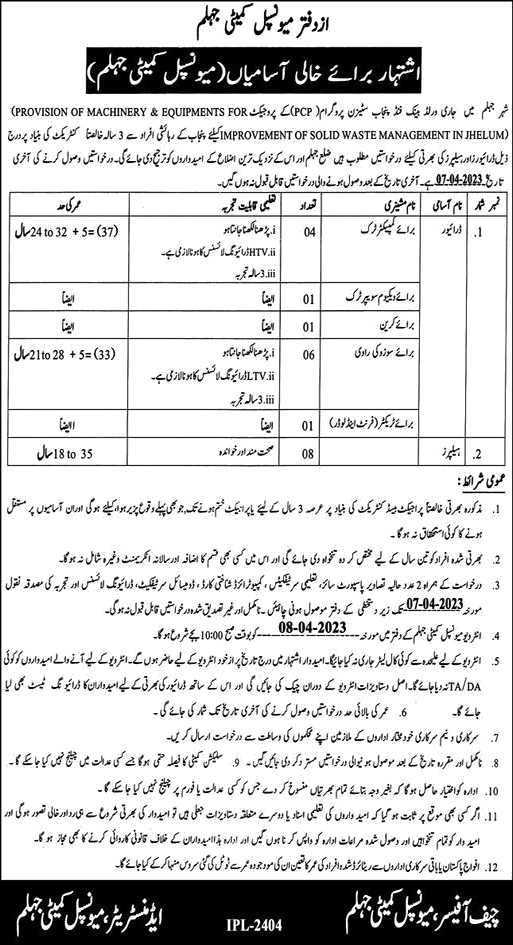 از دفتر میونسپل کمیٹی جہلم
اشتہار برائے خالی آسامیاں (میونسپل کمیٹی جہلم)
شہر جہلم میں جاری ورلڈ بینک فنڈ پنجاب سٹیزن پروگرام (PCP) کے پروجیکٹ PROVISION OF MACHINERY & EQUIPMENTS FOR)
IMPROVEMENT OF SOLID WASTE MANAGEMENT IN JHELUM) کیلئے پنجاب کے رہائشی افراد سے 3 سالہ خالصتاً کنٹریکٹ کی بنیاد پر درج
ذیل ڈرائیورز اور ہیلپرز کی بھرتی کیلئے درخواستیں مطلوب ہیں ضلع جہلم اور اس کے نزدیک ترین اضلاع کے امیدواروں کو ترجیح دی جائے گی۔ درخواستیں وصول کرنے کی آخری
تاریخ 07-04-2023 ہے۔ آخری تاریخ کے بعد وصول ہونے والی درخواستیں قابل قبول نہ ہوں گی۔
نمبر شمار نام آسامی نام مشینری تعداد تعلیمی قابلیت تجربہ عمر کی حد
1. ڈرائیور برائے کمپیکٹر ٹرک 04 i. پڑھنا لکھنا جانتا ہو 24 to 32 + 5= (37) سال
ii. HTV ڈرائیونگ لائسنس کا ہونا لازمی ہے۔
iii. 3 سالہ تجربہ
برائے ویکیوم سویپر ٹرک 01 ایضاً ایضاً
برائے کرین 01 ایضاً ایضاً
برائے سوزوکی راوی 06 i. پڑھنا لکھنا جانتا ہو 21 to 28 + 5= (33) سال
ii. LTV ڈرائیونگ لائسنس کا ہونا لازمی ہے۔
iii. 3 سالہ تجربہ
برائے ٹریکٹر (فرنٹ اینڈ لوڈر) 01 ایضاً ایضاً
2. ہیلپرز 08 صحت مند اور خواندہ 18 to 35 سال
عمومی شرائط:
1. مذکورہ بھرتی خالصتاً پراجیکٹ بیسڈ کنٹریکٹ کی بنیاد پر عرصہ 3 سال کے لیئے یا پراجیکٹ ختم ہونے تک، جو بھی پہلے وقوع پزیر ہوا، کیلئے ہوگی اور ان آسامیوں پر مستقل
ہونے کا کوئی استحقاق نہ ہوگا۔
2. بھرتی شدہ افراد کو تین سال کے لیے مختص کردہ تنخواہ دی جائے گی اور اس میں کسی بھی قسم کا اضافہ اور سالانہ انکریمنٹ وغیرہ شامل نہ ہوگا۔
3. درخواست کے ہمراہ 2 عدد حالیہ تصاویر پاسپورٹ سائز، تعلیمی سرٹیفکیٹس، کمپیوٹرائزڈ شناختی کارڈ، ڈومیسائل سرٹیفکیٹ، ڈرائیونگ لائسنس اور تجربہ کی مصدقہ نقول
مورخہ 07-04-2023 تک زیر دستخطی کے دفتر موصول ہونی چاہئیں۔ نامکمل اور غیر تصدیق شدہ درخواستیں قابل قبول نہ ہوگی۔
4. انٹرویو میونسپل کمیٹی جہلم کے دفتر میں مورخہ 08-04-2023 کو بوقت صبح 10:00 بجے شروع ہوگا۔
5. انٹرویو کے لیے علیحدہ سے کوئی کال لیٹر جاری نہ کیا جائیگا۔ امیدوار اشتہار میں درج تاریخ پر از خود انٹرویو کے لیے حاضر ہوں گے۔ انٹرویو کے لیے آنے والے امیدواروں کو کوئی
TA/DA نہ دیا جائے گا۔ اصل دستاویزات انٹرویو کے دوران چیک کی جائیں گی اور اس کے ساتھ ڈرائیور کی بھرتی کے لیے امیدواران کا ڈرائیونگ ٹیسٹ بھی لیا
جائے گا۔ 6. عمر کی بالائی حد درخواستیں وصول کرنے کی آخری تاریخ تک شمار کی جائے گی۔
7. سرکاری و نیم سرکاری خود مختار اداروں کے ملازمین اپنے محکموں کی وساطت سے درخواست ارسال کریں۔
8. نامکمل اور مقررہ تاریخ کے بعد موصول ہونیوالی درخواستیں مسترد کر دی جائیں گیں۔ 9. سلیکشن کمیٹی کا فیصلہ حتمی ہوگا جسے کسی عدالت میں چیلنج نہیں کیا جا سکے گا
10. ادارہ کو اختیار حاصل ہوگا کہ بغیر وجہ بتائے تمام بھرتیاں منسوخ کر دے جس کو کسی عدالت یا فورم پر چیلنج نہیں کیا جا سکے گا۔
11. اگر کسی بھی موقع پر ثابت ہو گیا کہ امیدواروں کی تعلیمی اسناد یا دوسرے متعلقہ دستاویزات جعلی ہیں تو امیدوار کی بھرتی شروع سے ہی رد اور خالی تصور ہوگی اور
امیدوار کو تمام تنخواہیں اور وصول شدہ مراعات ادارہ کو واپس کرنا ہوں گیں اور ادارہ ہذا امیدواران کے خلاف قانونی کاروائی کرنے کا بھی مجاز ہوگا۔
12. افواج پاکستان یا باقی سرکاری اداروں سے ریٹائرڈ شدہ افراد کی عمر کا تعین ان کی موجودہ عمر سے ٹوٹل کی گئی سروس منہا کر کے کیا جائے گا۔
چیف آفیسر، میونسپل کمیٹی جہلم IPL-2404 ایڈمنسٹریٹر، میونسپل کمیٹی جہلم